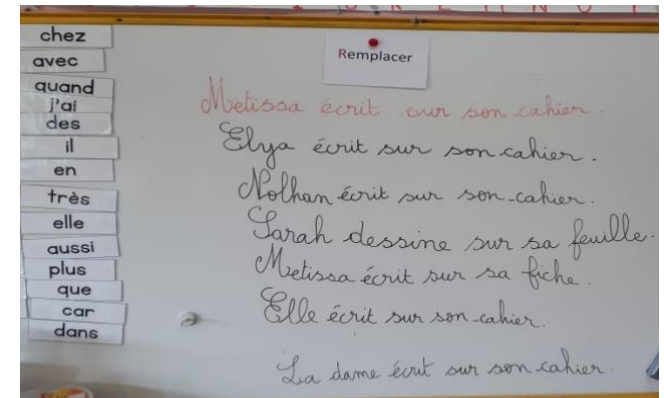 chez
avec
quand
j'ai
des
il
en
très
elle
aussi
plus
que
car
dans
Remplacer
Metissa écrit sur son cahier.
Elya écrit sur son cahier.
Nolhan écrit sur son cahier.
Sarah dessine sur sa feuille.
Metissa écrit sur sa fiche.
Elle écrit sur son cahier.
La dame écrit sur son cahier.